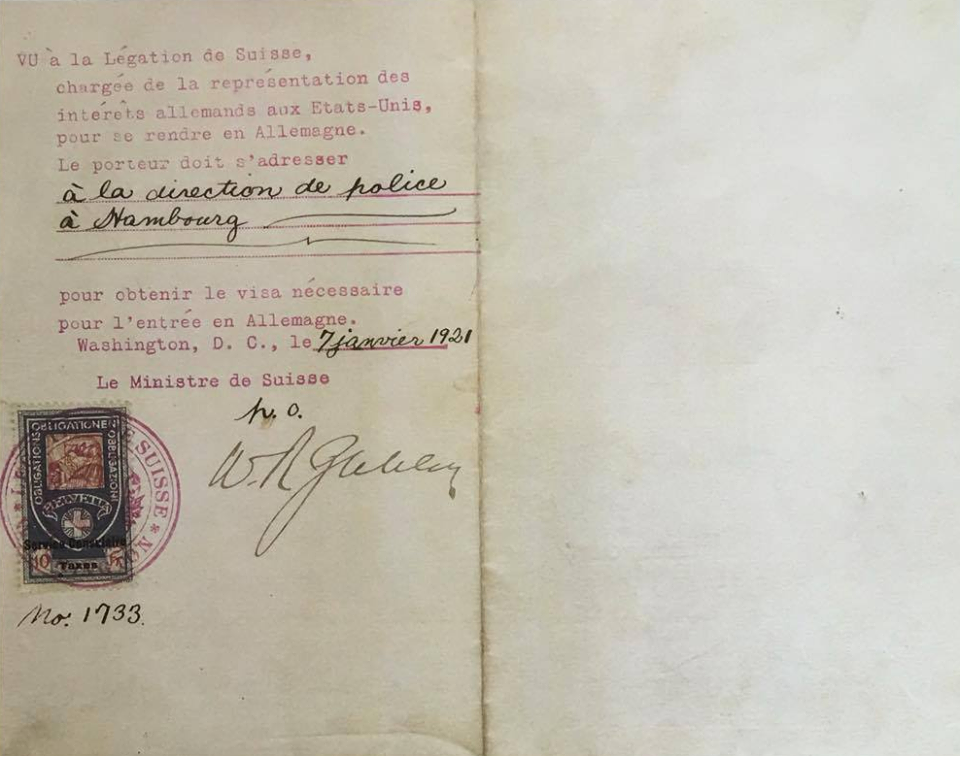 VU à la Légation de Suisse,
chargée de la représentation des
intérêts allemands aux Etats-Unis,
pour se rendre en Allemagne.
Le porteur doit s'adresser
à la direction de police
à Hambourg
pour obtenir le visa nécessaire
pour l'entrée en Allemagne.
Washington, D. C., le 7 janvier 1921
Le Ministre de Suisse
p. o.
OBLIGATIONEN
OBLIGATIONS
OBBLIGAZIONI
HELVETIA
Service Consulaire
10 Taxes Fr.
SUISSE
No. 1733.